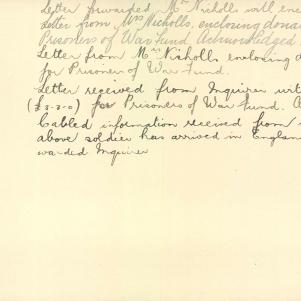 Letter forwarded Mrs Nicholls will enc
Letter from Mrs Nicholls, enclosing dona
Prisoners of War Fund Acknowledged
Letter from Mrs Nicholls enclosing d
for Prisoner of War Fund.
Letter received from Inquirer wit
(£3-3-0) for Prisoners of War Fund. A
Cabled information received from
above soldier has arrived in England
warded Inquirer